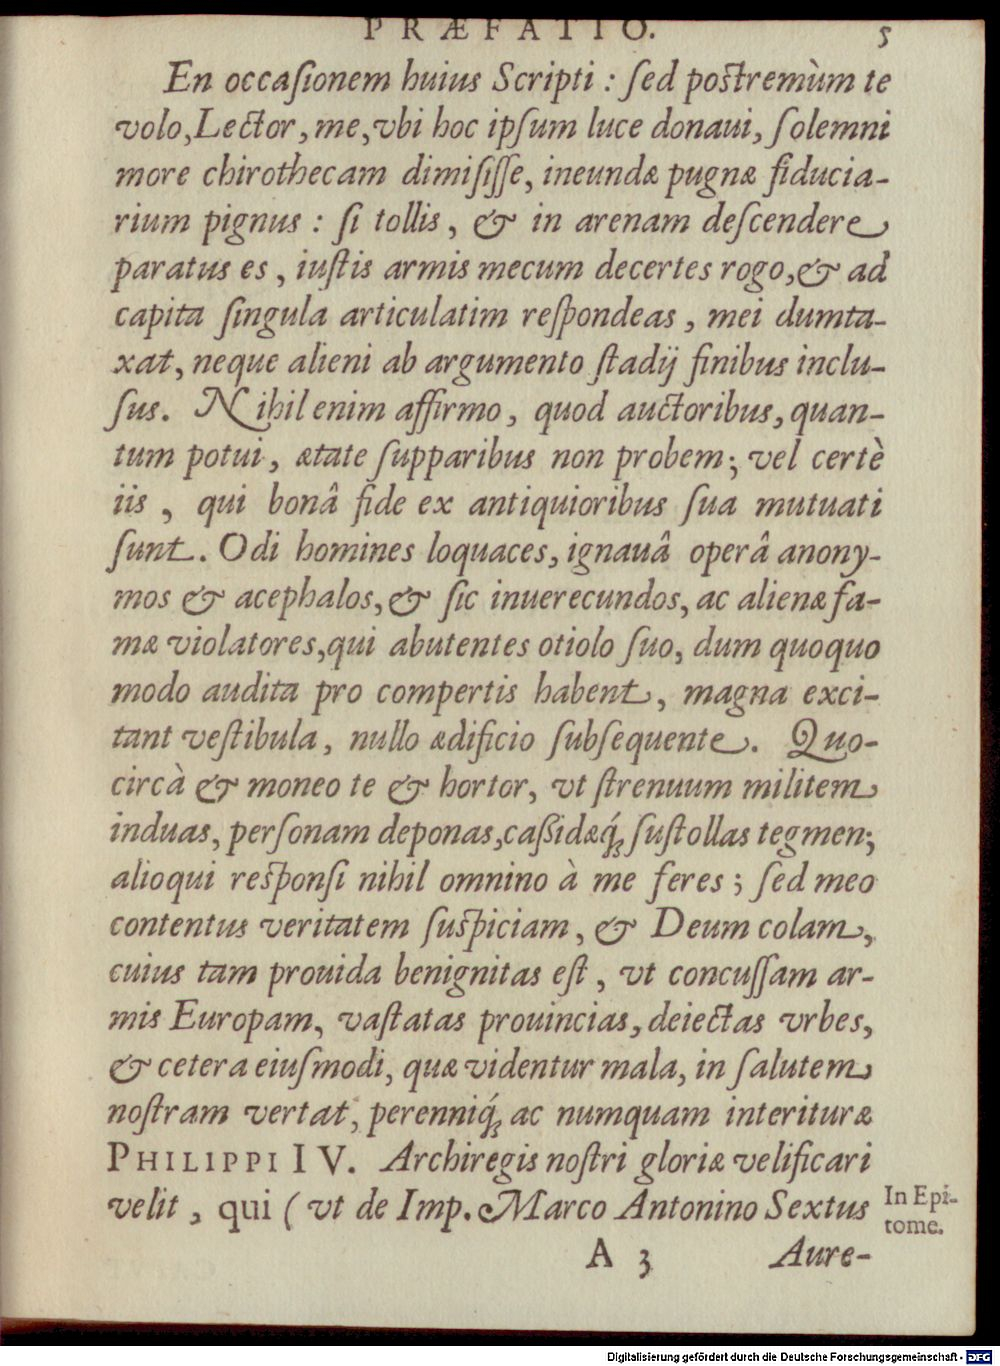 PRÆFATIO. 5
En occaſionem huius Scripti : ſed poſtremùm te
volo, Lector, me, vbi hoc ipſum luce donaui, ſolemni
more chirothecam dimiſiſſe, ineundæ pugnæ fiducia-
rium pignus : ſi tollis, & in arenam deſcendere
paratus es, iuſtis armis mecum decertes rogo, & ad
capita ſingula articulatim reſpondeas, mei dumta-
xat, neque alieni ab argumento ſtadij finibus inclu-
ſus. Nihil enim affirmo, quod auctoribus, quan-
tum potui, ætate ſupparibus non probem; vel certè
iis, qui bonâ fide ex antiquioribus ſua mutuati
ſunt. Odi homines loquaces, ignauâ operâ anony-
mos & acephalos, & ſic inuerecundos, ac alienæ fa-
mæ violatores, qui abutentes otiolo ſuo, dum quoquo
modo audita pro compertis habent, magna exci-
tant veſtibula, nullo ædificio ſubſequente. Quo-
circà & moneo te & hortor, vt ſtrenuum militem
induas, perſonam deponas, caßidæq́ꝫ ſuſtollas tegmen;
alioqui reſponſi nihil omnino à me feres; ſed meo
contentus veritatem ſuſpiciam, & Deum colam,
cuius tam prouida benignitas eſt, vt concuſſam ar-
mis Europam, vaſtatas prouincias, deiectas vrbes,
& cetera eiuſmodi, quæ videntur mala, in ſalutem
noſtram vertat, perenniq́ꝫ ac numquam interituræ
PHILIPPI IV. Archiregis noſtri gloriæ velificari
velit, qui (vt de Imp. Marco Antonino Sextus
In Epi-
tome.
A 3 Aure-
Digitalisierung gefördert durch die Deutsche Forschungsgemeinschaft - DFG